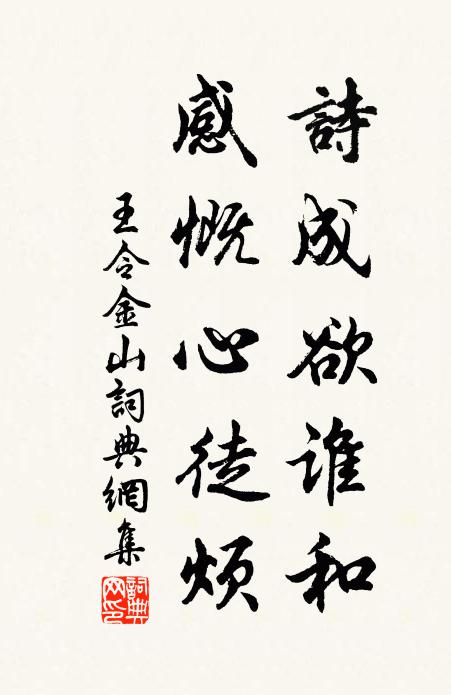 詩成欲誰和
感慨心徒煩
王令金山詞典網集
詞典網印